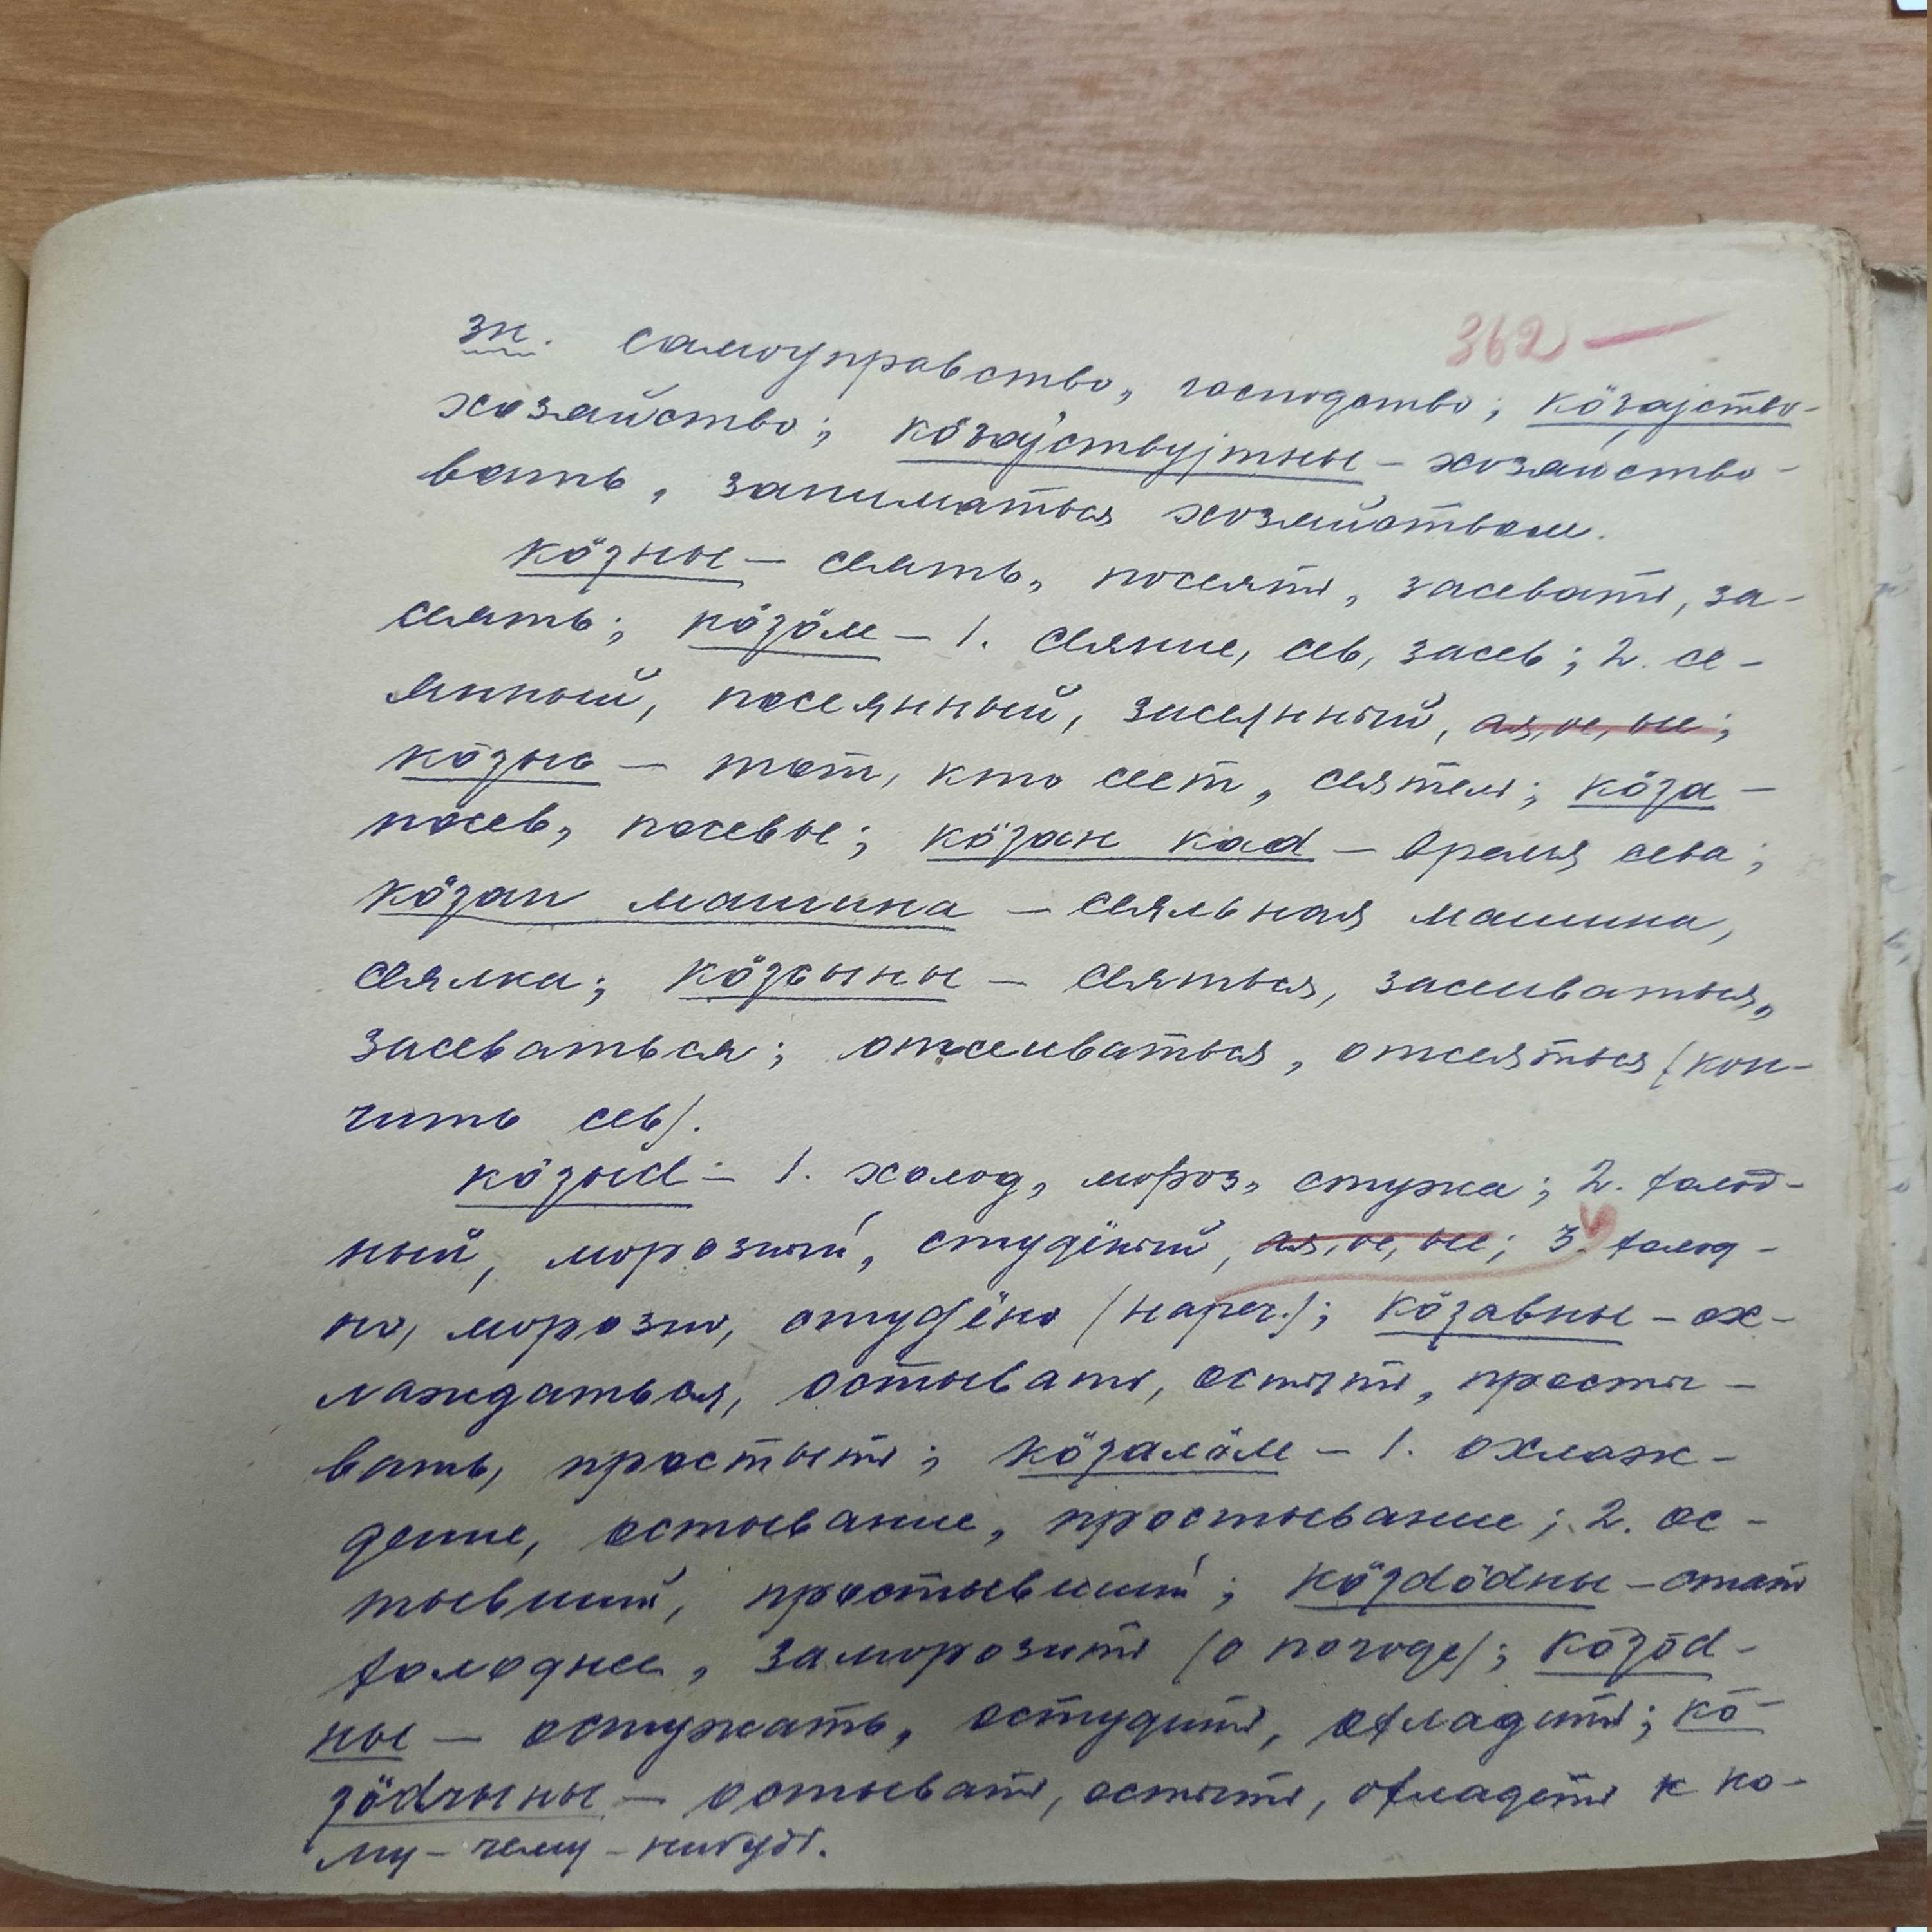 362 —
зн. самоуправство, господство; кöзаjство-
хозяйство; кöзаjствуjтны – хозяйство-
вать, заниматься хозяйством.
кöзны – сеять, посеять, засевать, за-
сеять; кöзöм – 1. сеяние, сев, засев; 2. се-
янный, посеянный, засеянный, ая, ое, ые;
кöзыс – тот, кто сеет, сеятель; кöза –
посев, посевы; кöзан кад – время сева;
кöзан машина – сеяльная машина,
сеялка; кöзсыны – сеяться, засеиваться,
засеваться; отсеиваться, отсеяться (кон-
чить сев).
кöзыd – 1. холод, мороз, стужа; 2. холод-
ный, морозный, студёный, ая, ое, ые; 3. холод-
но, морозно, студёно (нареч.); кöзавны – ох-
лаждаться, остывать, остыть, просты-
вать, простыть; кöзалöм – 1. охлаж-
дение, остывание, простывание; 2. ос-
тывший, простывший; кöзdödны – стать
холоднее, заморозить (о погоде); кöзöd-
ны – остужать, остудить, охладить; кö-
зödчыны – остывать, остыть, охладеть к ко-
му-чему-нибудь.